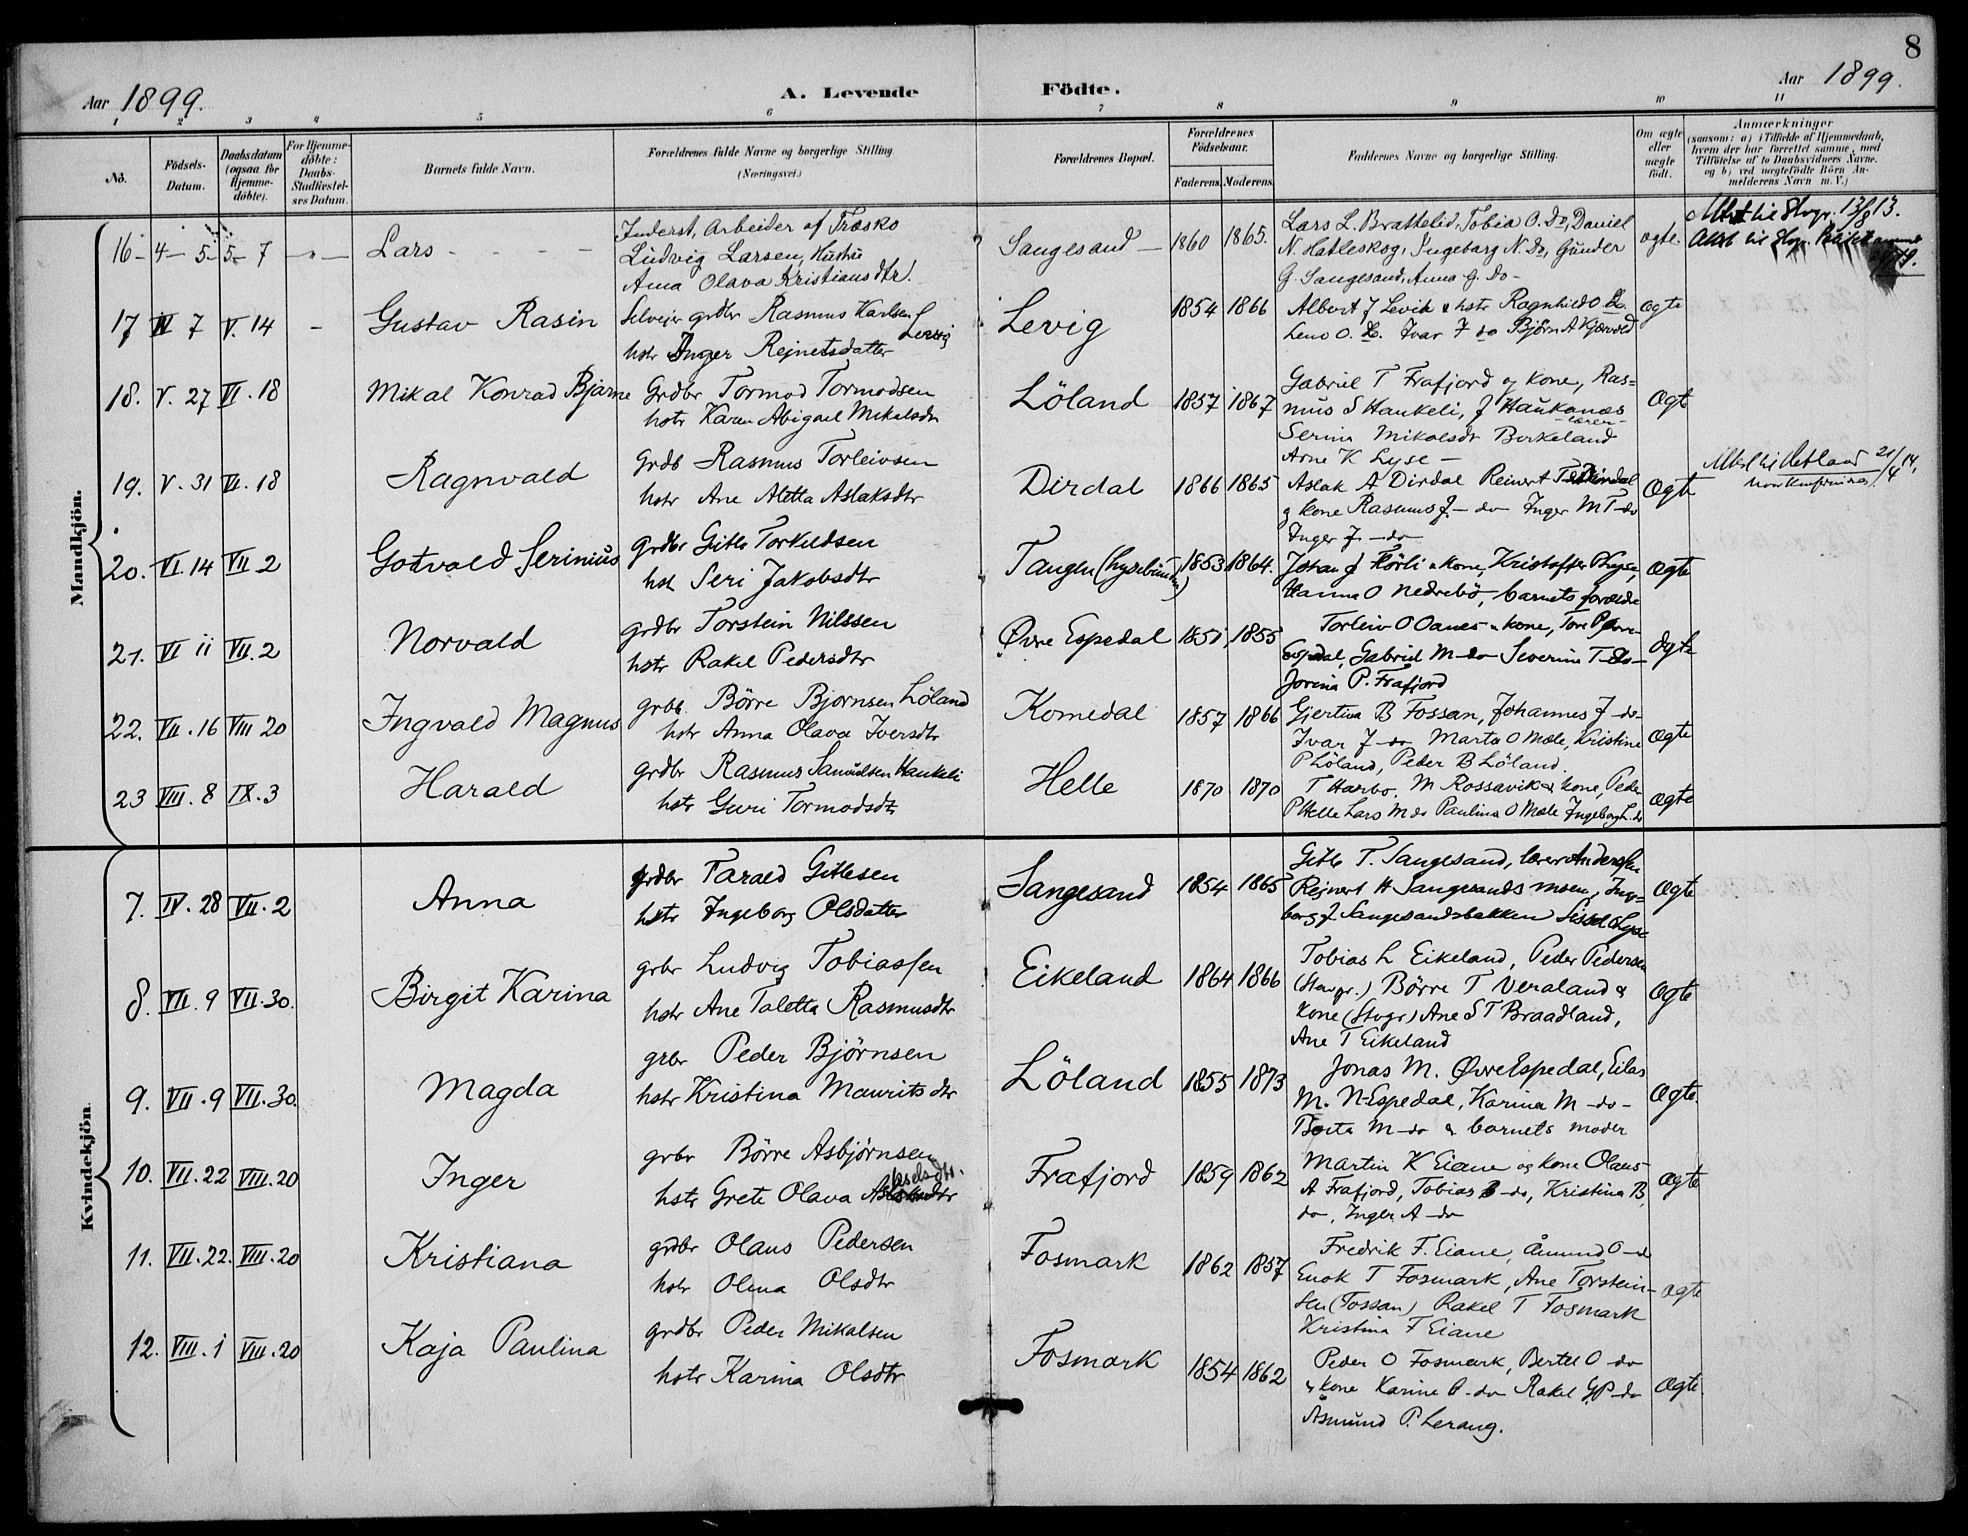 8
Aar 1899.
A. Levende Födte.
Aar 1899.
1 2 3 4 5 6 7 8 9 10 11
No.
Födsels-Datum.
Daabsdatum (ogsaa for Hjemmedöbte).
For Hjemmedöbte: Daabs-Stadfæstelses Datum.
Barnets fulde Navn.
Forældrenes fulde Navne og borgerlige Stilling
(Næringsvei.)
Forældrenes Bopæl.
Forældrenes Födselsaar.
Faderens. Moderens.
Faddernes Navne og borgerlige Stilling.
Om ægte eller uægte födt.
Anmærkninger
(saasom: a) i Tilfælde af Hjemmedaab,
hvem der har forrettet samme, med
Tilföielse af to Daabsvidners Navne.
og b) ved uægtefödte Börn An-
melderens Navn m. V.)
Mandkjön.
16 4-5 5-7 Lars
Inderst, Arbeider af Træsko
Ludvig Larsen, Hustru
Anna Olava Kristiansdtr!
Sangesand 1860 1865.
Lars L. Brattelid, Tobia O. Do, Daniel
N. Hatleskog, Ingeborg N. Do, Gunder
G. Sangesand, Anna G. do -
ægte.
17 IV 7 V. 14 - Gustav Rasin
Selveier grdbr Rasmus Karlsen Levig
hstr Inger Rejnertsdatter
Levig 1854 1866
Albert J Levik & hstr Ragnhild O Do.
Lena O. Do. Ivar J do Bjørn A Kjærvold
ægte
18. V. 27 VI. 18 Mikal Konrad Bjarne
Grdbr Tormod Tormodsen
hstr Karen Abigael Mikalsdtr
Löland 1857 1867
Gabriel T Frafjord og kone, Ras=
mus S Haukeli, J Haukanæs
-lærer-
Serina Mikalsdtr Birkeland
Arne K Lyse -
Ægte
19. V. 31 VI. 18 Ragnvald
Grdb Rasmus Torleivsen
hstr Ane Aletta Aslaksdtr
Dirdal 1866 1865
Aslak A Dirdal Reinert T Dirdal
& kone Rasmus J. - do Inger M T - do
Inger J - do
Ægte
20. VI. 14 VII 2 Gotvald Serinius
grdbr Gitle Torkildsen
hstr Seri Jakobsdtr
Tangen (Lysebunden) 1853 1864.
Johan J Flörli & kone, Kristoffer Lyse,
Hanna O Nedrebö, barnets forældre
Ægte
21. VI ii VII. 2 Norvald
grdbr Torstein Nilssen
hstr Rakel Pedersdtr
Øvre Espedal 1851 1855
Torleiv O Oanes & kone, Tore P Øvre-
espedal, Gabriel M - do Severine T - do -
Jorina P. Frafjord
Ægte
22. VII. 16 VIII 20 Ingvald Magnus
grbr. Börre Bjornsen Löland
hstr Anna Olava Iversdtr
Komedal 1857 1866
Gjertina B Fossan, Johannes J - do -
Ivar J - do Marta O Mæle, Kristine
P Löland, Peder B Löland.
Ægte
23 VIII. 8 IX. 3 Harald
grdbr Rasmus Samuelsen Haukeli
hstr Guri Tormodsdtr
Helle 1870 1870
T Harbo. M Rossavik & kone, Peder
P Helle Lars M do Paulina O Mæle Ingeborg L. do
Ægte
Kvindekjön.
7. IV. 28 VII. 2 Anna
grdbr Tarald Gitlesen
hstr Ingeborg Olsdatter
Sangesand 1854 1865
Gitle T. Sangesand, lærer Andersen
Rejnert H Sangesandsmoen, Inge=
borg J. Sangesandsbakken Sissel Lyse
Ægte
8. VII. 9 VII. 30. Birgit Karina
grbr Ludvig Tobiassen
hstr Ane Taletta Rasmusdtr
Eikeland 1864 1866
Tobias L Eikeland, Peder Pedersen
(Stavgr.) Börre T Veraland &
kone (Stvgr) Ane S T Braadland,
Ane T Eikeland
Ægte
9. VII. 9 VII. 30. Magda
grbr Peder Björnsen
hstr Kristina Mauritsdtr
Löland 1855 1873
Jonas M. Øvre Espedal, Eilas
M. N-Espedal, Karina M - do -
Berta M - do & barnets moder
Ægte.
10. VII. 22 VIII. 20 Inger
grbr Börre Asbjørnsen
hstr Grete Olava
Frafjord 1859 1862
Martin K Eiane og kone Olaus
A Frafjord, Tobias B - do, Kristina B
do, Inger A - do
Ægte
11. VII. 22. VIII. 20 Kristiana
grdbr Olaus Pedersen
hstr Olina Olsdtr
Fosmark 1862 1857
Fredrik F. Eiane, Åmund O - do
Enok T Fosmark, Ane Torstein-
sen (Fossan) Rakel T Fosmark
Kristina F Eiane
Ægte
12. VIII. 1 VIII. 20 Kaja Paulina
grdbr Peder Mikalsen
hstr Karina Olsdtr
Fosmark 1854 1862
Peder O Fosmark, Bertel O - do
& kone Karine B - do Rakel G.P - do
Åsmund P. Lerang.
Ægte